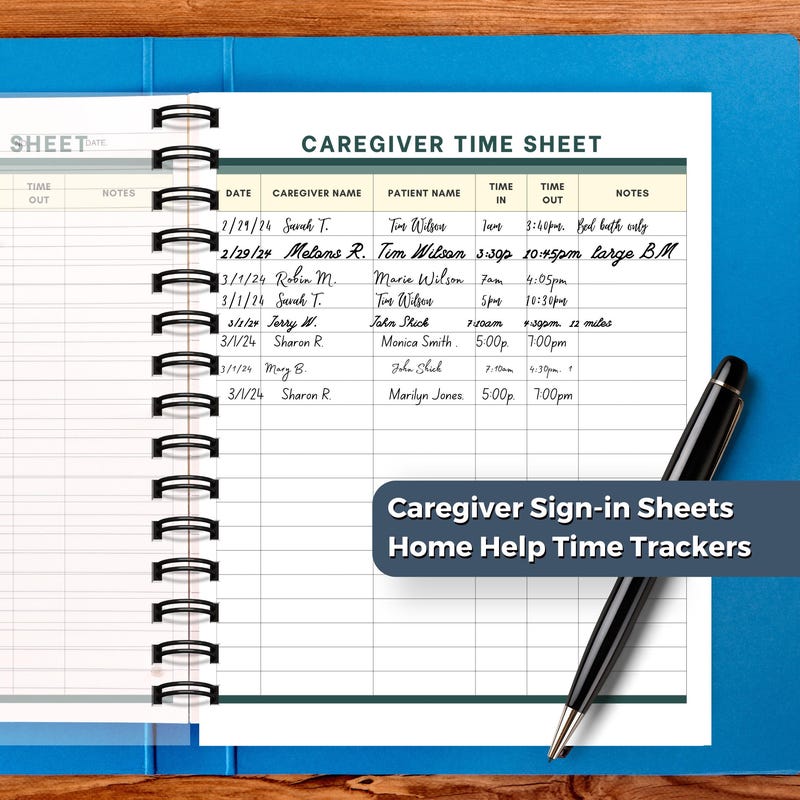 SHEET DATE.
TIME OUT NOTES
CAREGIVER TIME SHEET
DATE CAREGIVER NAME PATIENT NAME TIME IN TIME OUT NOTES
2/29/24 Sarah T. Tim Wilson 7am 3:40pm. Bed bath only
2/29/24 Melons R. Tim Wilson 3:30p 10:45pm large BM
3/1/24 Robin M. Marie Wilson 7am 4:05pm
3/1/24 Sarah T. Tim Wilson 5pm 10:30pm
3/1/24 Terry W. John Shick 7:10am 4:30pm. 12 miles
3/1/24 Sharon R. Monica Smith . 5:00p. 7:00pm
3/1/24 Mary B. John Shick 7:10am 4:30pm. 1
3/1/24 Sharon R. Marilyn Jones. 5:00p. 7:00pm
Caregiver Sign-in Sheets
Home Help Time Trackers